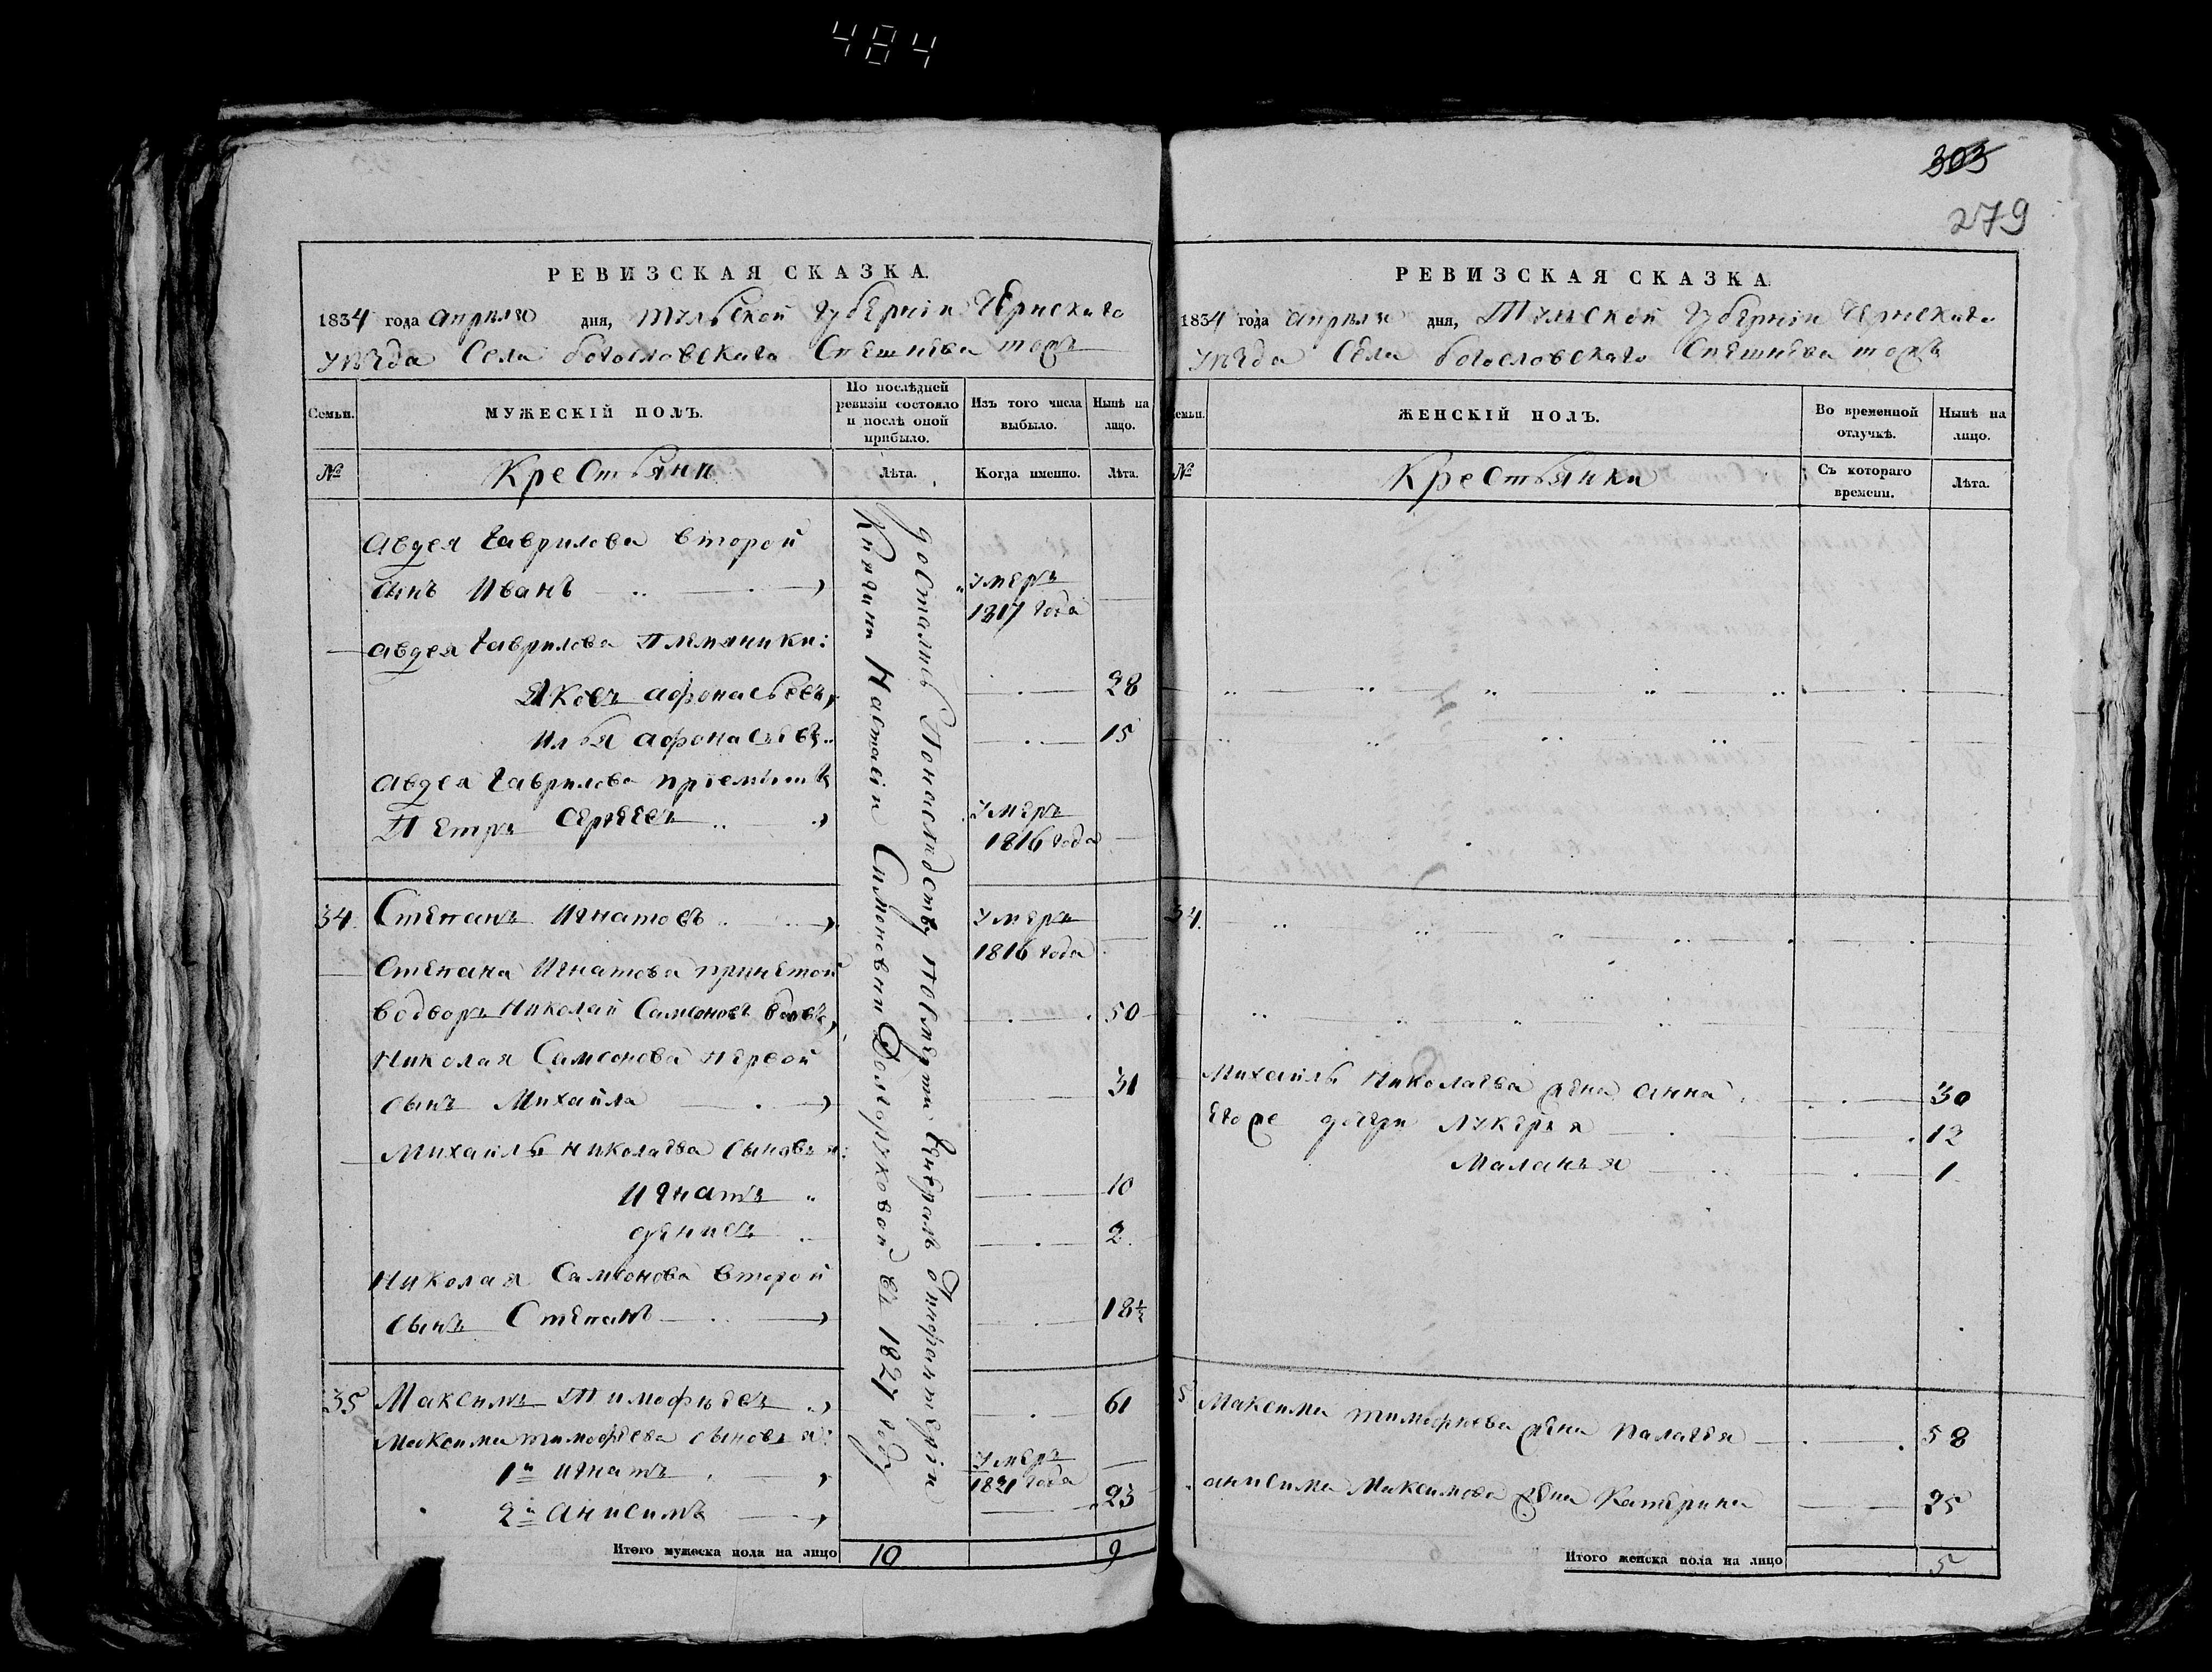 484
303
279
РЕВИЗСКАЯ СКАЗКА.
1834 года апреля дня, Тульской Губернiи Чернскаго
уѣзда Села богословскаго Спешнева тожъ
Семьи.
МУЖЕСКІЙ ПОЛЪ.
По послѣдней
ревизіи состояло
и послѣ оной
прибыло.
Изъ того числа
выбыло.
Нынѣ на
лицо.
№
Крестьяни
Лѣта.
Когда именно.
Лѣта.
Авдея Гаврилова второй
сынъ Иванъ умеръ
1817 года
Авдея Гаврилова племяники:
Яковъ Афонасьевъ, 28
Илья Афонасьевъ 15
Авдея Гаврилова прiемышъ
Петръ Сергеевъ умеръ
1816 года
34. Степанъ Игнатовъ умеръ
1816 года
Степана Игнатова принетой
водворъ Николай Самсоновъ 50
Николая Самсонова первой
сынъ Михайла 31
Михайлы Николаева сыновья:
Игнатъ 10
денисъ 2.
Николая Самсонова второй
сынъ Степанъ 18½
35 Максимъ Тимофѣевъ 61
Максима тимофѣева сыновья:
1й Игнатъ умеръ
1821 года
2й Анисимъ 23
Итого мужеска пола на лицо 10 9
достались Понаследству посмерти Генералъ отинфантерiи
Княгини Настасiи Симоновни Долгоруковой въ 1827 году
РЕВИЗСКАЯ СКАЗКА
1834 года апреля дня, Тульской Губернiи Чернскаго
уѣзда Села богословскаго Спешнева тожъ
Семьи.
ЖЕНСКІЙ ПОЛЪ.
Во временной
отлучкѣ.
Нынѣ на
лицо.
№
Крестьянки
Съ котораго
времени.
Лѣта.
34.
Михайлы Николаева жена анна 30
Егоже дочери Лукерья 12
Маланья 1
5 Максима тимофѣева жена Палагея 58
анисима Максимова жена Катерина 25
Итого женска пола на лицо 5